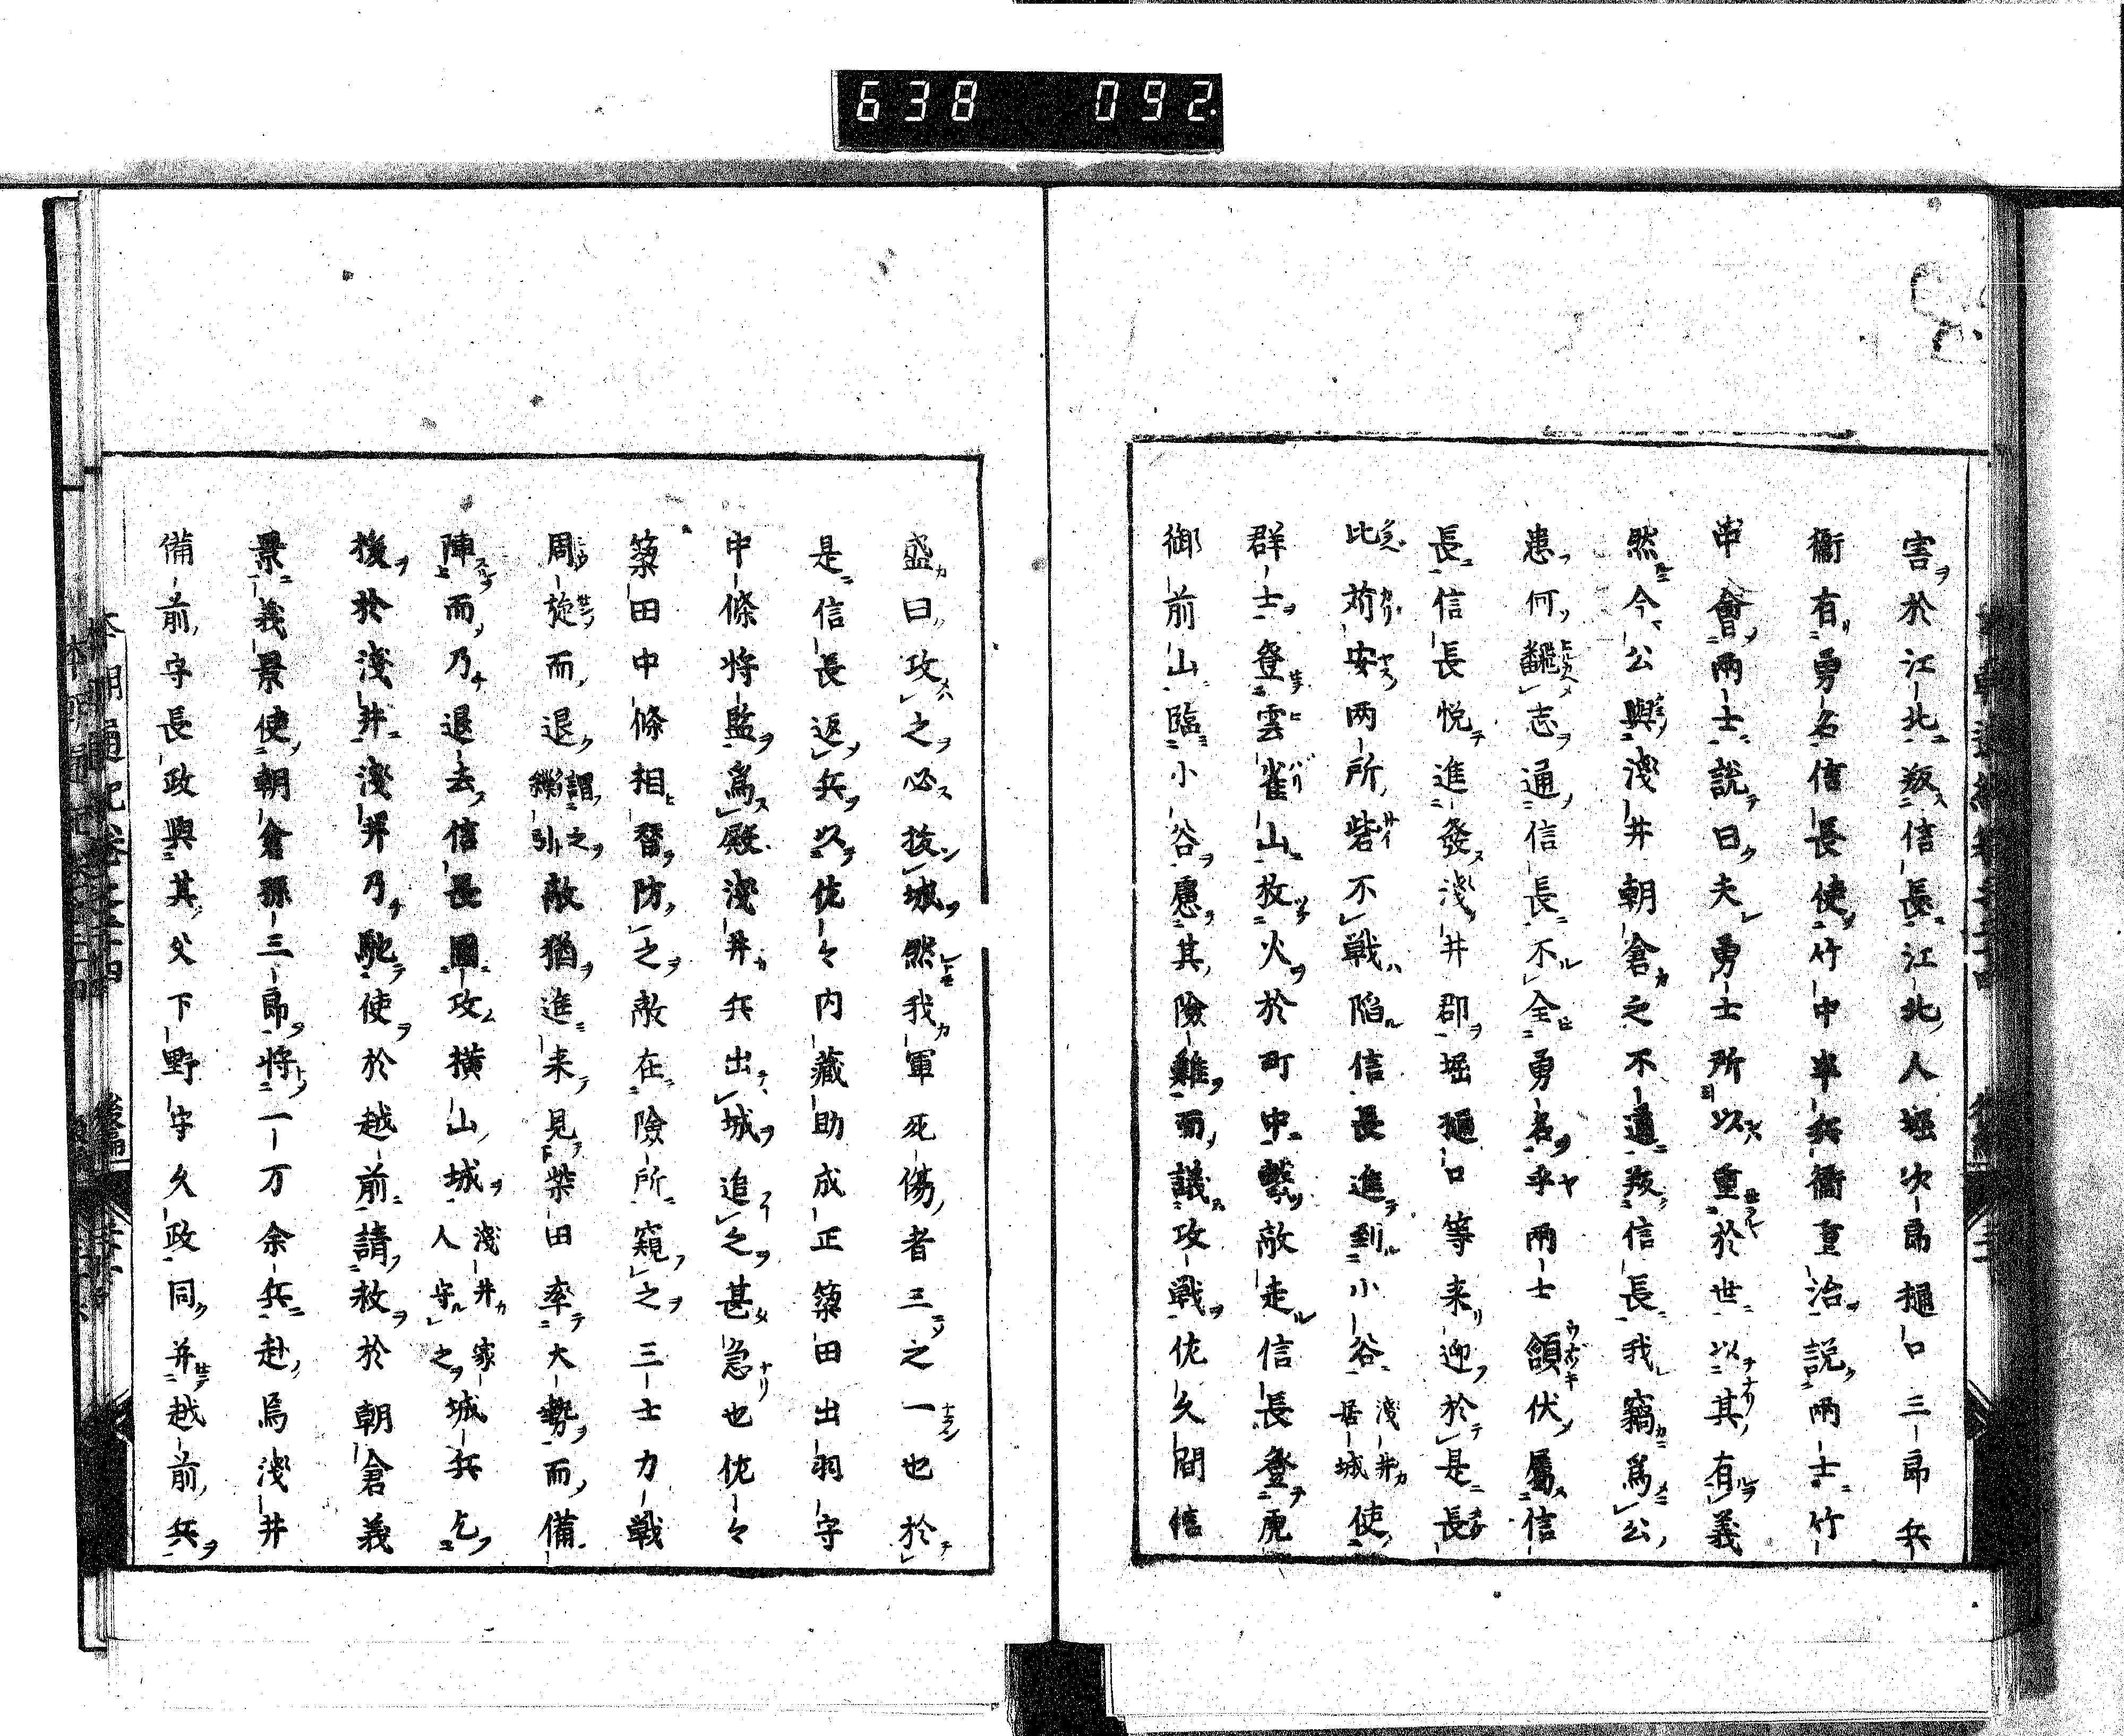 638 092
害於江北叛信長江北人堀次郎樋口三郎兵
衞有勇名信長使竹中半兵衞重治説兩士竹
中會兩士説曰夫勇士所以重於世以其有義
然今公與淺井朝倉之不適叛信長我竊爲公
患何翻志通信長不全勇名乎兩士頷伏屬信
長信長悦進發淺井郡堀樋口等来迎於是長
比苅安两所砦不戦陷信長進到小谷淺井居城使
群士登雲雀山放火於町中撃敵走信長登虎
御前山臨小谷慮其險難而議攻戦佐久間信
盛曰攻之必抜城然我軍死傷者三之一也於
是信長返兵以佐々内藏助成正簗田出羽守
中條将監爲殿淺井兵出城追之甚急也佐々
簗田中條相替防之敵在險所窺之三士力戦
周旋而退謂之繰引敵猶進来見柴田率大勢而備
陣而乃退去信長圍攻横山城淺井家人守之城兵乞
援於淺井淺井乃馳使於越前請救於朝倉義
景義景使朝倉孫三郎将一万余兵赴焉淺井
備前守長政與其父下野守久政同并越前兵
本朝通紀卷
後編